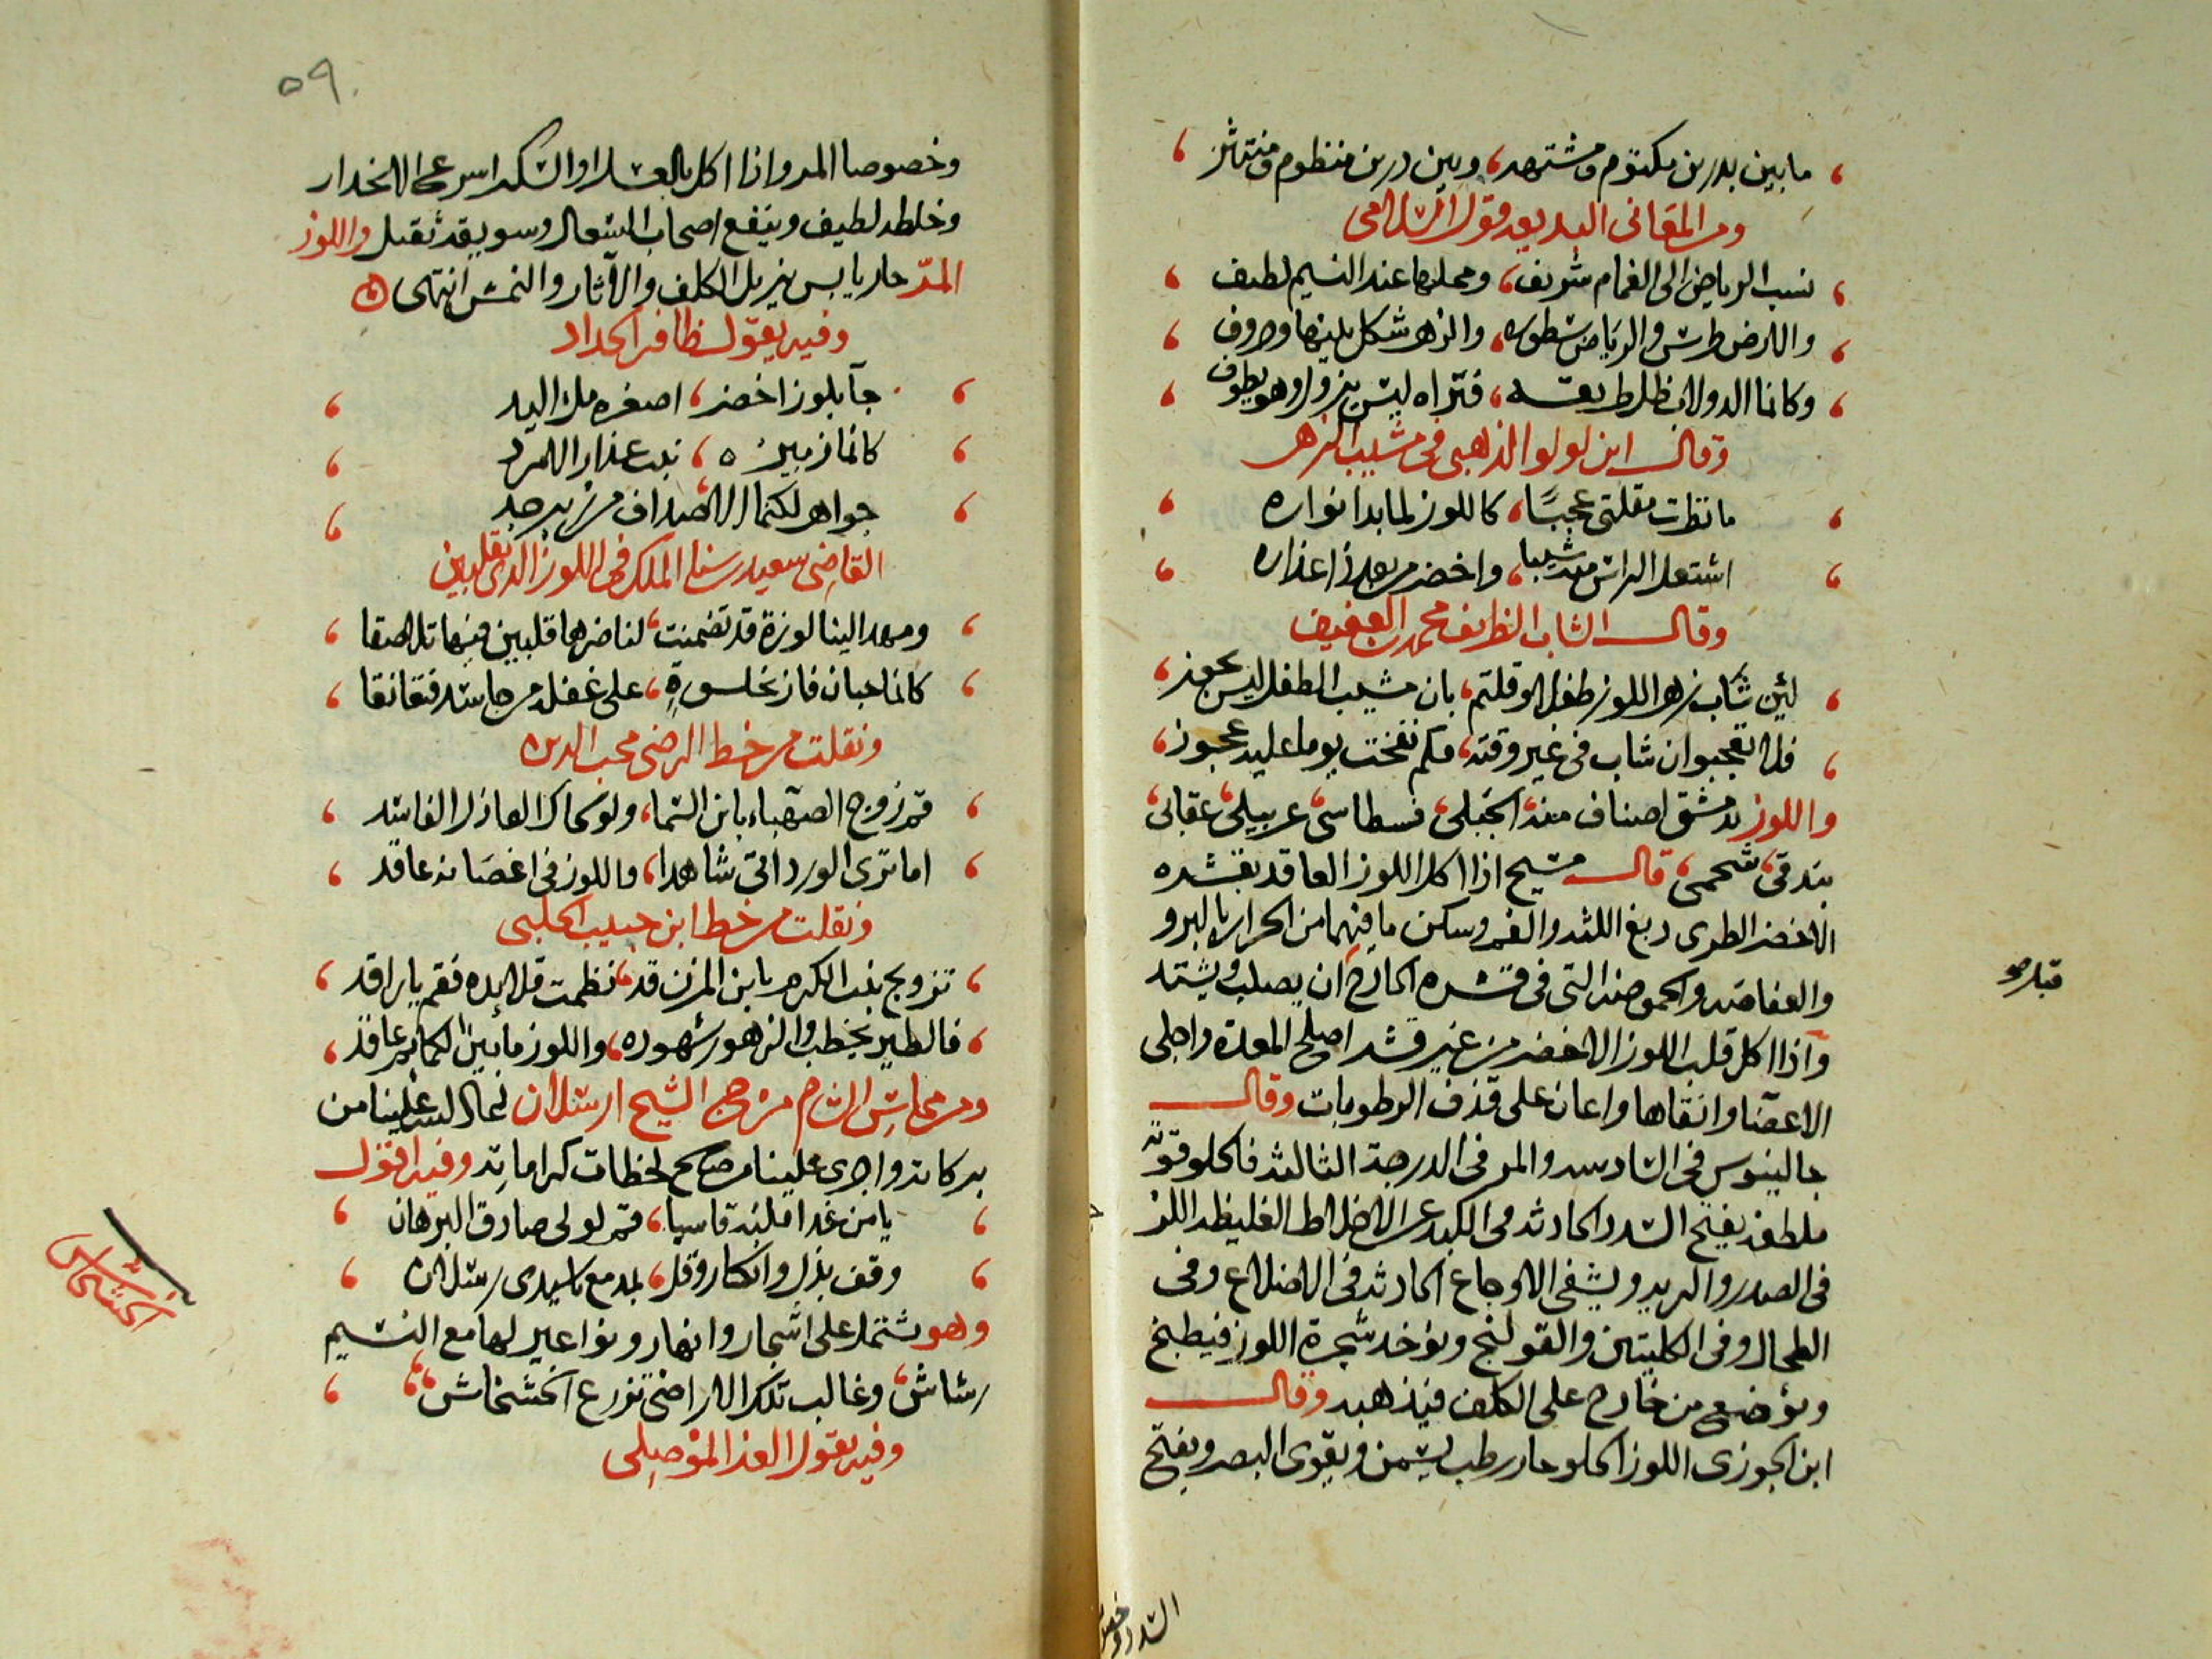 ما بين بدرين مكتوم ومشتهر، وبين درين منتظوم ومنتثر
ومن المعانى البديعه قول السلامى
نسب الرياض الى الغمام شريف، ومحلها عند النسيم لطيف
والارض طرس والرياض سطوره، والزهر شكل بينها وحروف
وكانما الدولاب ظل طريقه، فتراه ليس يزول وهو يطوف
وقال ابن لولو الذهبى فى مشيب الزهر
ما نظرت مقلتى عجيبًا، كاللوز لما بدا نواره
اشتعل الراس منه شيبا، واخضر من بعد ذا عذاره
وقال الشاب الظريف محمد بن العفيف
لئن شاب زهر اللوز طفلا وقلتم، بان مشيب الطفل ليس يجوز
فلا تعجبوا ان شاب فى غير وقته، فكم نفخت يوما عليه عجوز
واللوز بدمشق اصناف منه، الجبلى، فسطاسى، عربيلى، عقابى
بندقى، شحمى، قال مسيح اذا اكل اللوز العاقد بقشره
الاخضر الطرى دبغ اللثه والفم وسكن ما فيهما من الحراره بالبرد
والعفاصه والحموضه التى فى قشره الخارج ان يصلب ويشتد
واذا اكل قلب اللوز الاخضر من غير قشر اصلح المعدة واجلى
الاعضا وانقاها واعان على قذف الرطوبات وقال
جالينوس فى السادسه والمر فى الدرجة الثالثه فالحلو قوته
ملطفه يفتح السدد الحادثه فى الكبد عن الاخلاط الغليظه اللز
فى الصدر والريه ويشفى الاوجاع الحادثه فى الاضلاع وفى
الطحال وفى الكليتين والقولنج ويؤخد شجرة اللوز فيطبخ
ويؤضع من خارج على الكلف فيذهبه وقال
ابن الجوزى اللوز الحلو حار رطب يسمن ويقوى البصر ويفتح
قبل
السدد وخصوصا
٥٩
وخصوصا المر واذا اكل بالعسل او السكر اسرع الانحدار
وخلطه لطيف وينفع اصحاب السعال وسويقه ثقيل واللوز
المرّ حار يابس يزيل الكلف والآثار والنمش انتهى
وفيه يقول ظافر الحداد
جآ بلوز اخضر، اصغره ملا اليد
كانما زبيره، نبت عذار الامرد
جواهر لكنما، الاصداف من زبرجد
القاضى سعيد بن سنا الملك فى اللوز الذى بقلبين
ومهد الينا لوزة قد تضمنت، لناضرها قلبين فيها تلاصقا
كانما حبان فاز بخلسةٍ، على غفله من جاسد فتعانقا
ونقلت من خط الرضى محب الدين
قم زوج الصهباء بابن السما، ولو كحاك العاذل الفاسد
اما ترى الورد اتى شاهدا، واللوز فى اغصانه عاقد
ونقلت من خط ابن حبيب الحلبى
تزويج بنت الكرم بابن المزن قد، نظمت قلايده فقم يا راقد
فالطير يخطب والزهور شهوده، واللوز ما بين الكمايم عاقد
ومن محاسن الشام مرج الشيخ ارسلان اعاد الله علينا من
بركاته واجرى علينا من صالح لحظات كراماته وفيه اقول
يا من غدا قلبه قاسيا، قم لولى صادق البرهان
وقف بذل وانكسار وقل، بمدمع يا سيدى رسلان
وهو يشتمل على اشجار وانهار ونواعير لها مع النسيم
رشاش، وغالب تلك الاراضى تزرع الخشخاش
وفيه يقول العز الموصلى
الخشخاش